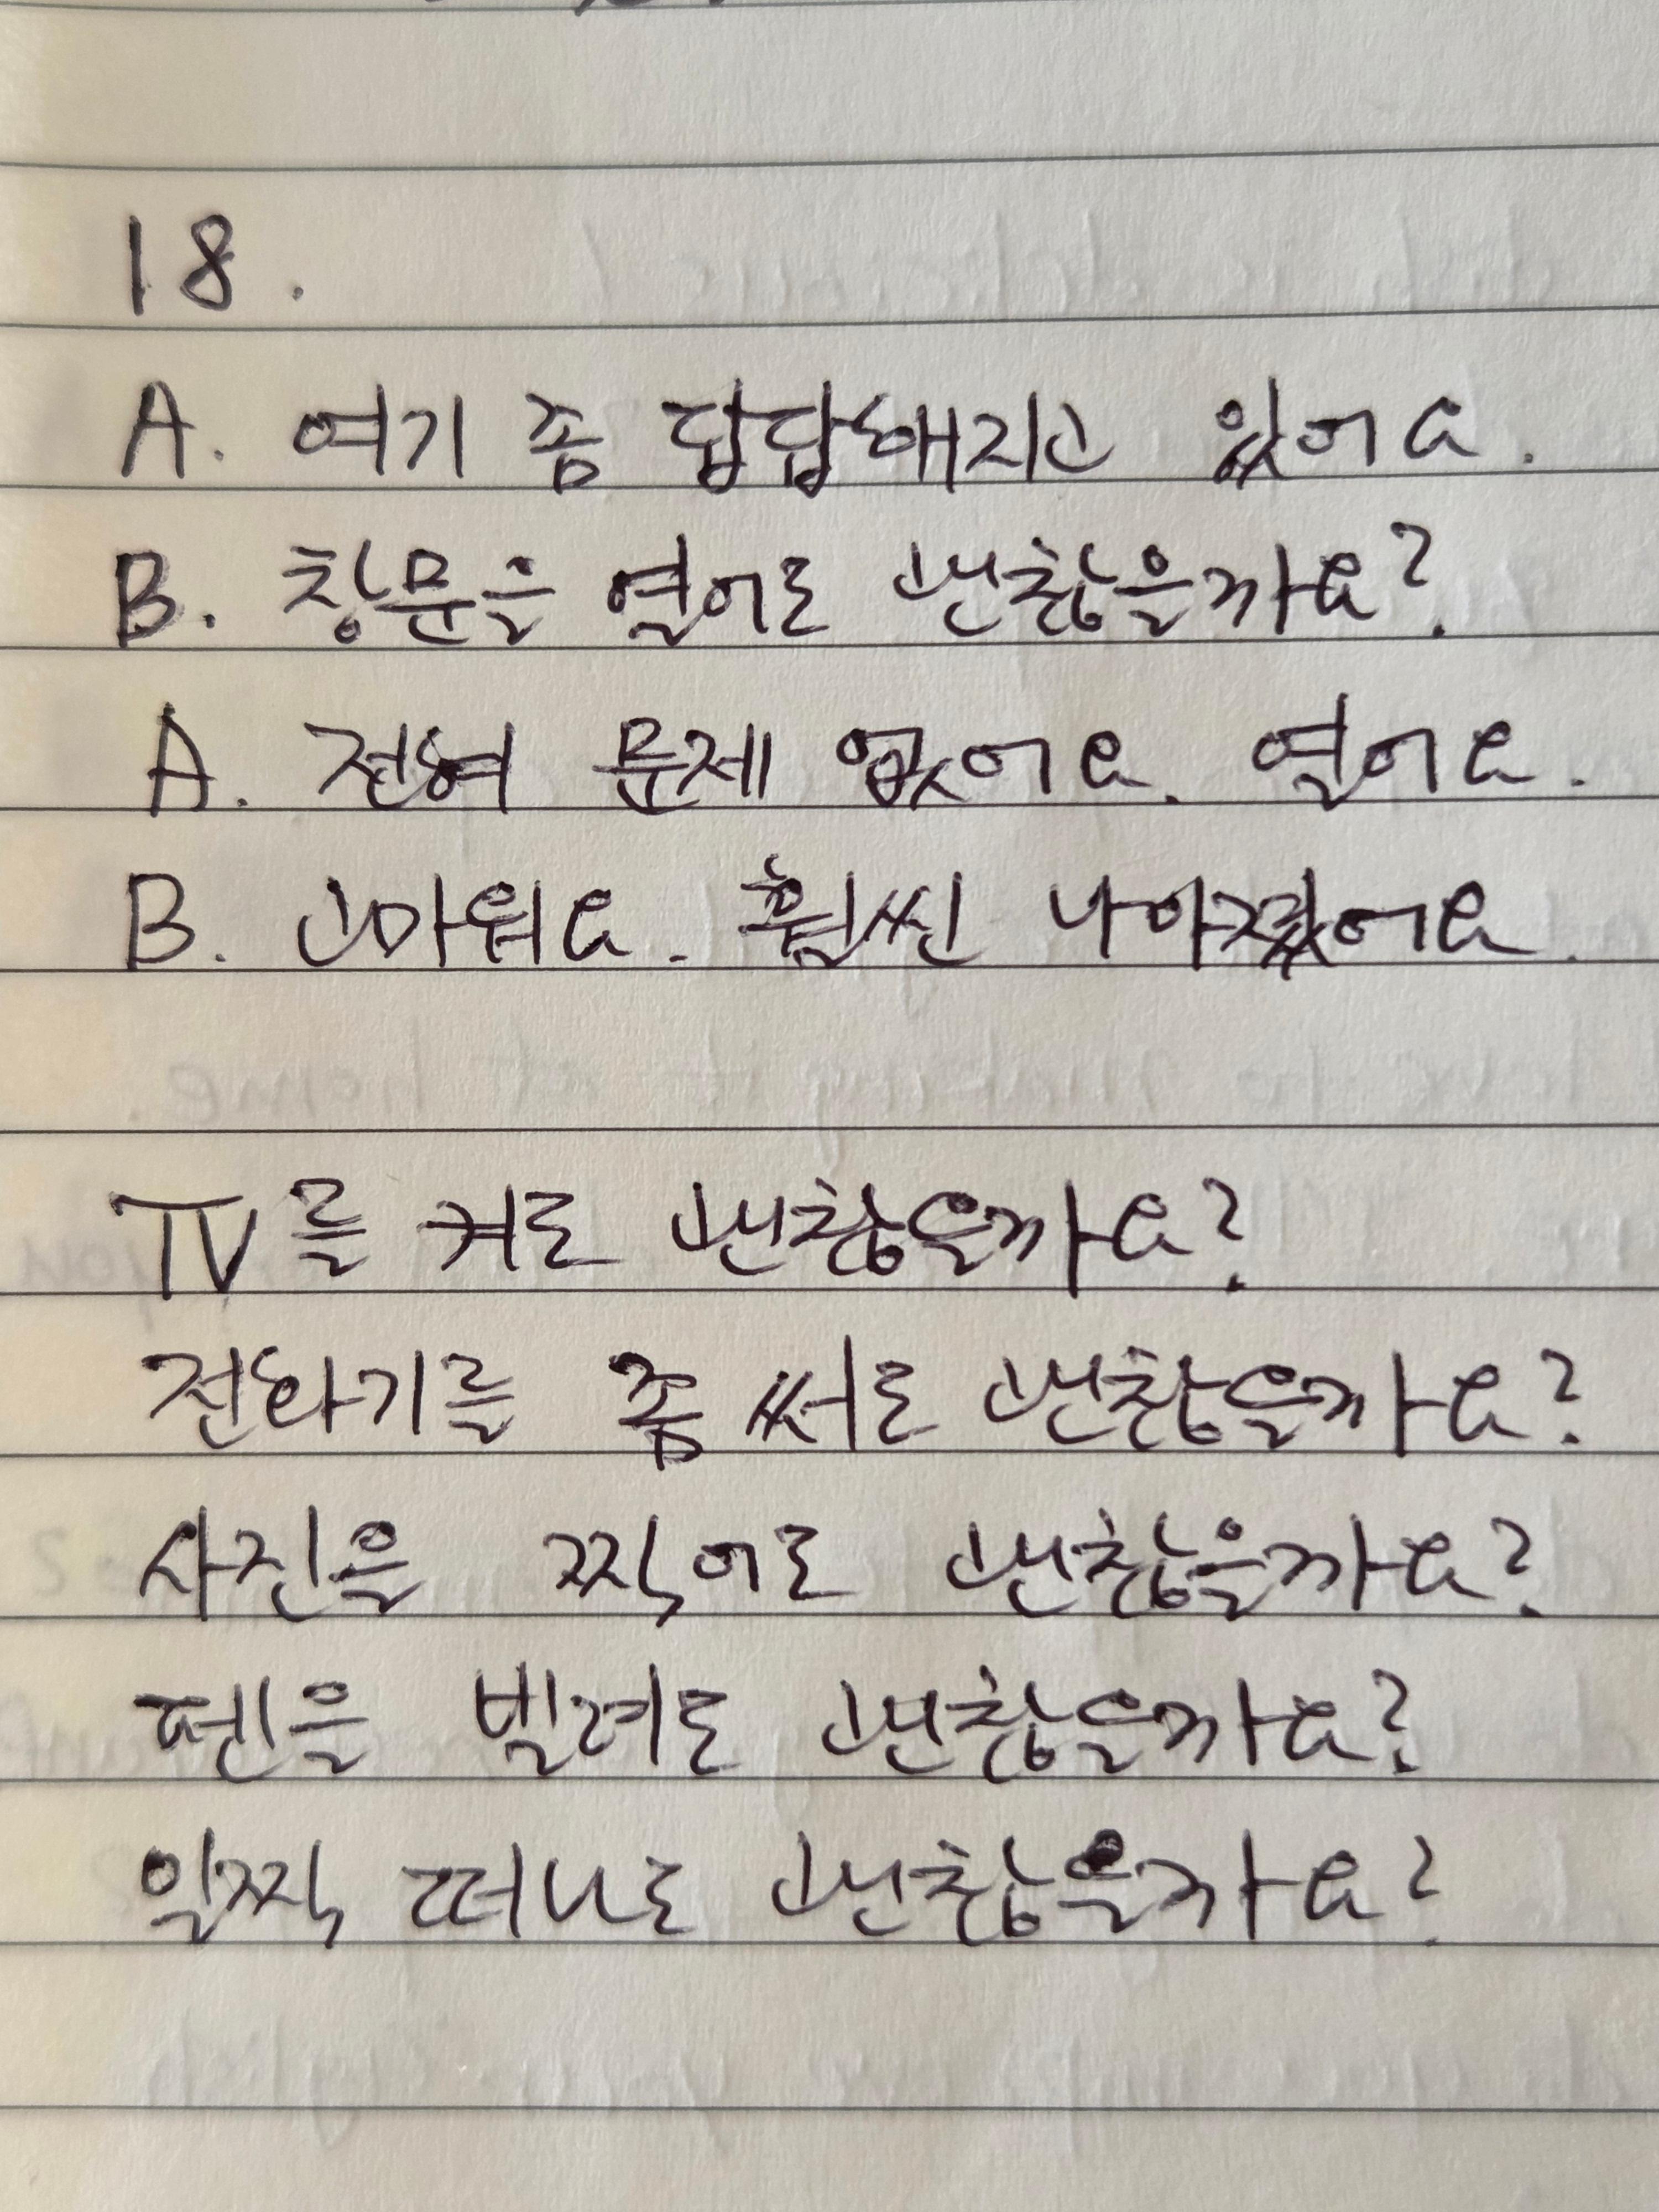 18.
A. 여기 좀 답답해지고 있어요.
B. 창문을 열어도 괜찮을까요?
A. 전혀 문제 없어요. 열어요.
B. 고마워요. 훨씬 나아졌어요.
TV를 켜도 괜찮을까요?
전화기를 좀 써도 괜찮을까요?
사진을 찍어도 괜찮을까요?
펜을 빌려도 괜찮을까요?
일찍 떠나도 괜찮을까요?